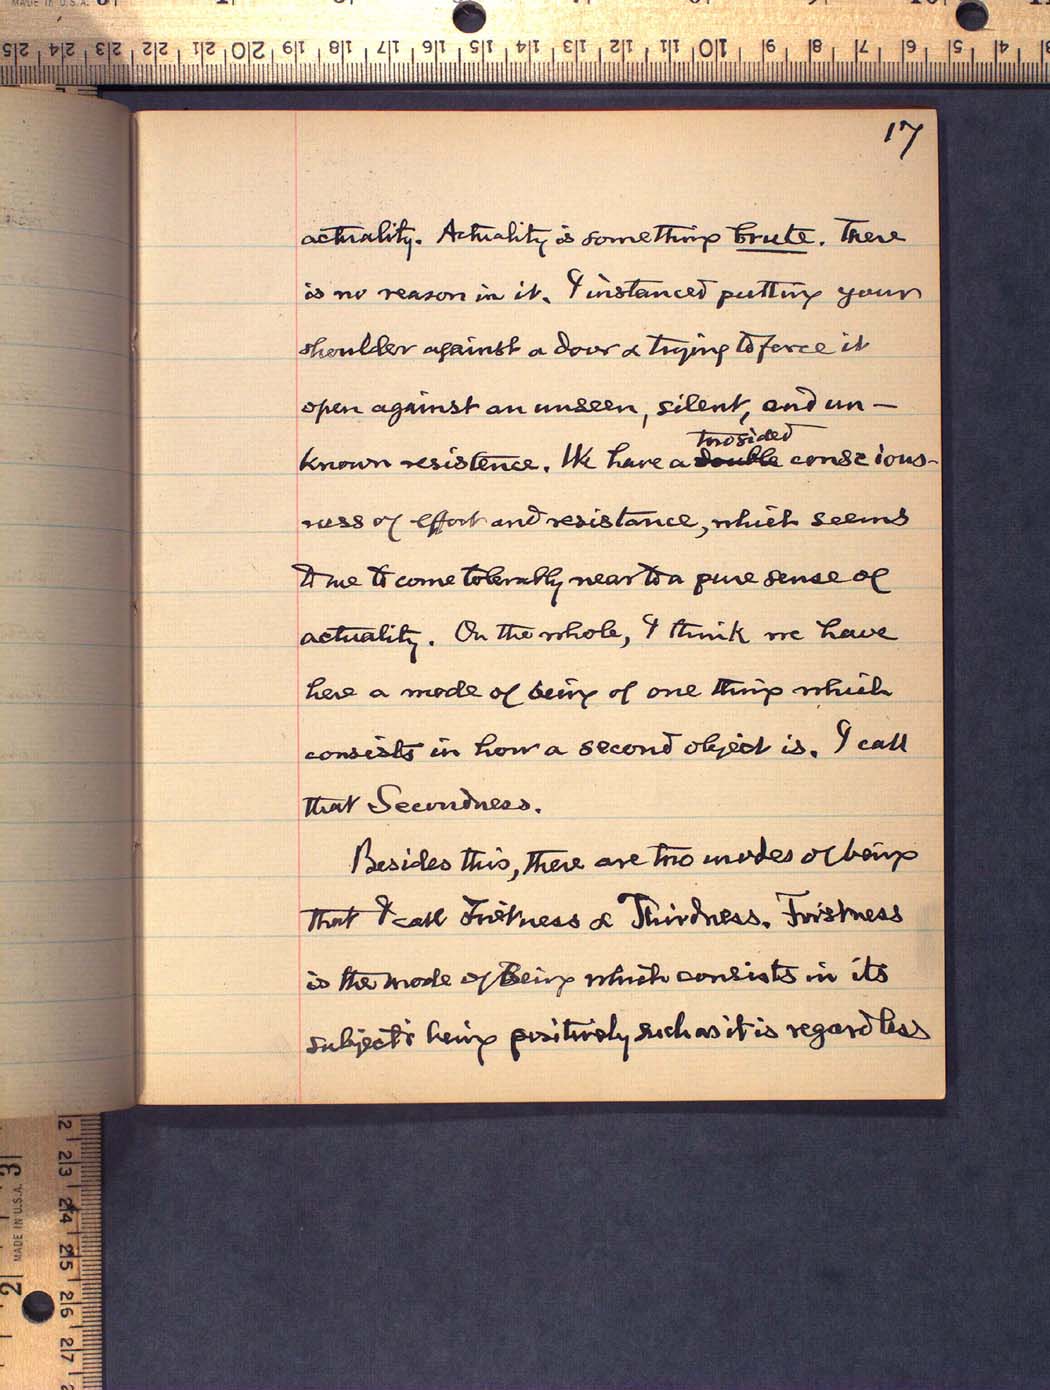 MADE IN U.S.A.
25 24 23 22 21 20 19 18 17 16 15 14 13 12 11 10 9 8 7 6 5 4 3
17
actuality. Actuality is something brute. There
is no reason in it. I instanced putting your
shoulder against a door & trying to force it
open against an unseen, silent, and un-
twosided
known resistence. We have a double conscious-
ness of effort and resistance, which seems
to me to come tolerably near to a pure sense of
actuality. On the whole, I think we have
here a mode of being of one thing which
consists in how a second object is. I call
that Secondness.
Besides this, there are two modes of being
that I call Firstness & Thirdness. Firstness
is the mode of Being which consists in its
subject's being positively such as it is regardless
2 23 24 25 26 27
3 2
MADE IN U.S.A.